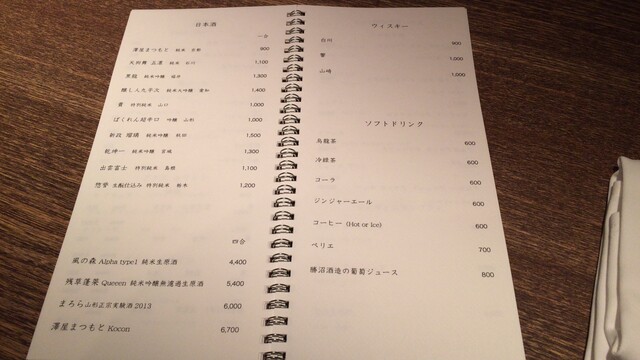 日本酒
一合
澤屋まつもと 純米 京都 900
天狗舞 五凛 純米 石川 1,100
黒龍 純米吟醸 福井 1,300
醸し人九平次 純米大吟醸 愛知 1,400
貴 特別純米 山口 1,000
ばくれん超辛口 吟醸 山形 1,000
新政 瑠璃 純米吟醸 秋田 1,500
乾坤一 純米吟醸 宮城 1,300
出雲富士 特別純米 島根 1,100
惣誉 生酛仕込み 特別純米 栃木 1,200
四合
風の森 Alpha type1 純米生原酒 4,400
残草蓬莱 Queeen 純米吟醸無濾過生原酒 5,400
まろら山形正宗実験酒2013 6,000
澤屋まつもと Kocon 6,700
ウィスキー
白州 900
響 1,000
山崎 1,000
ソフトドリンク
烏龍茶 600
冷緑茶 600
コーラ 600
ジンジャーエール 600
コーヒー (Hot or Ice) 600
ペリエ 700
勝沼酒造の葡萄ジュース 800